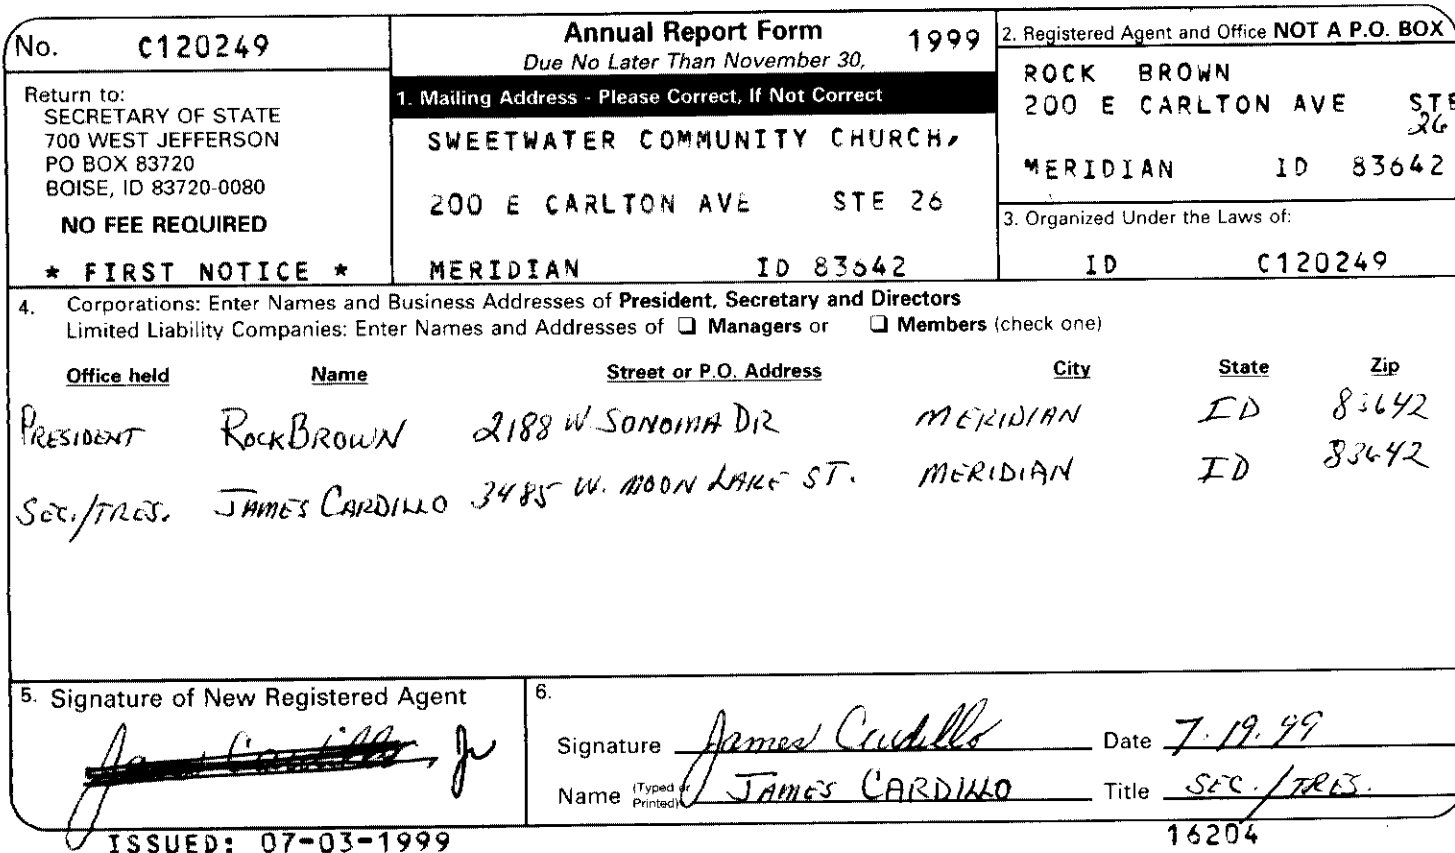 No. C120249
Return to:
SECRETARY OF STATE
700 WEST JEFFERSON
PO BOX 83720
BOISE, ID 83720-0080
NO FEE REQUIRED
* FIRST NOTICE *
Annual Report Form 1999
Due No Later Than November 30,
1. Mailing Address - Please Correct, If Not Correct
SWEETWATER COMMUNITY CHURCH,
200 E CARLTON AVE STE 26
MERIDIAN ID 83642
2. Registered Agent and Office NOT A P.O. BOX
ROCK BROWN
200 E CARLTON AVE STE
26
MERIDIAN ID 83642
3. Organized Under the Laws of:
ID C120249
4. Corporations: Enter Names and Business Addresses of President, Secretary and Directors
Limited Liability Companies: Enter Names and Addresses of ❑ Managers or ❑ Members (check one)
Office held Name Street or P.O. Address City State Zip
PRESIDENT ROCK BROWN 2188 W. SONOMA DR MERIDIAN ID 83642
SEC./TRES. JAMES CARDILLO 3485 W. MOON LAKE ST. MERIDIAN ID 83642
5. Signature of New Registered Agent
James Cardillo, Jr
6.
Signature James Cardillo Date 7.19.99
Name (Typed or Printed) JAMES CARDILLO Title SEC./TRES.
ISSUED: 07-03-1999
16204